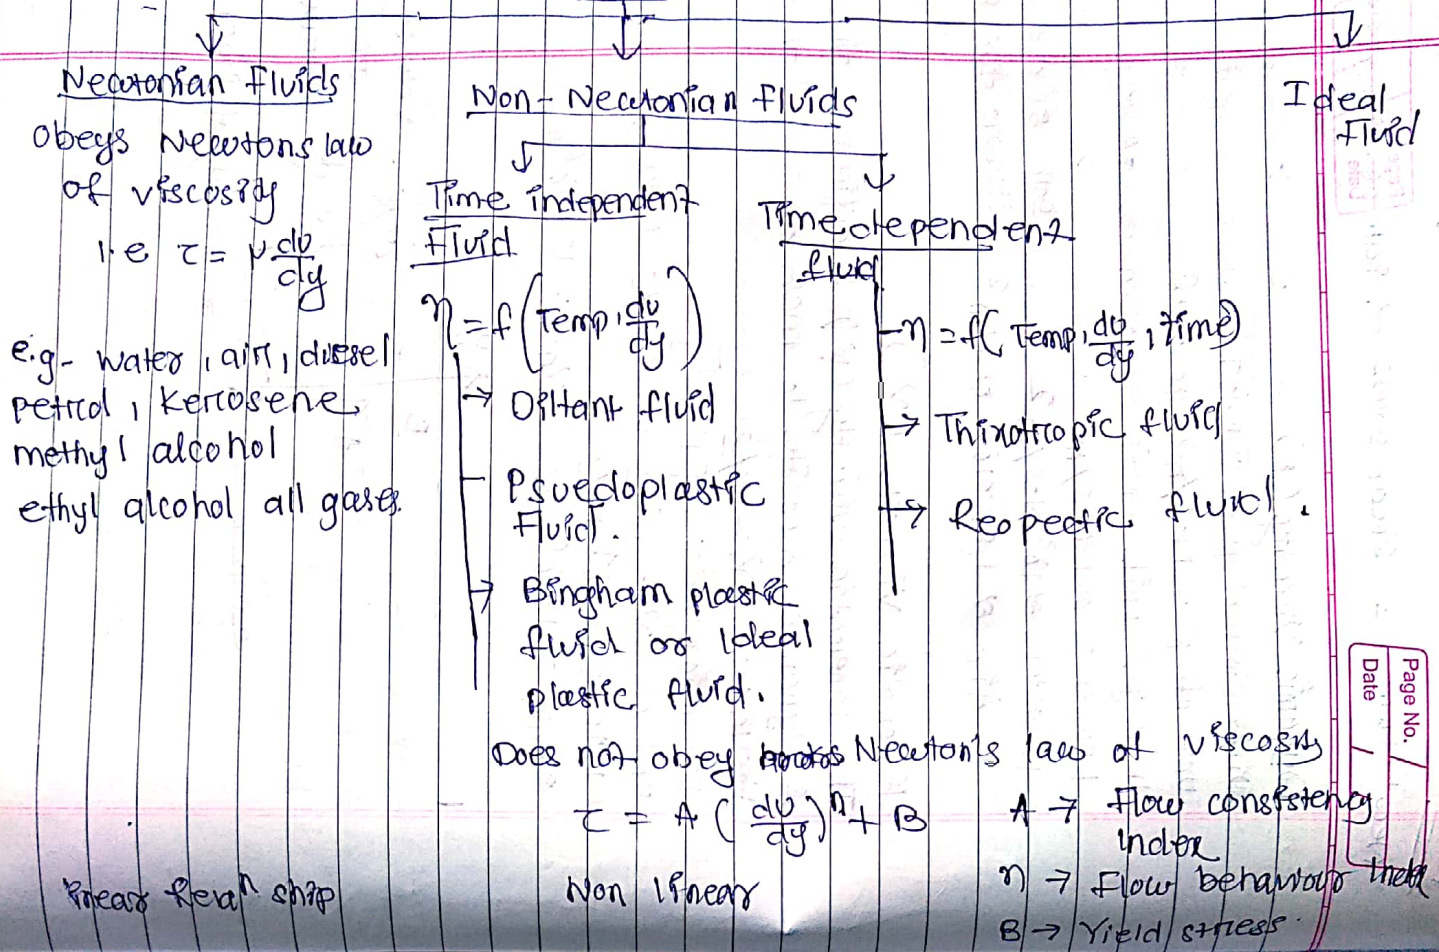 Newtonian fluids
obeys Newtons law
of viscosity
i.e τ = μ du/dy
e.g - water, air, diesel
petrol, kerosene
methyl alcohol
ethyl alcohol all gases.
linear relaⁿ ship
Non-Newtonian fluids
Time independent
Fluid
η = f(Temp, du/dy)
→ Diltant fluid
Psuedoplastic
Fluid.
→ Bingham plastic
fluid or Ideal
plastic fluid.
Time dependent
fluid
η = f( Temp, du/dy, time)
→ Thixotropic fluid
→ Reopectic fluid.
Does not obey Newton's law of viscosity
τ = A (du/dy)ⁿ + B
Non linear
A → Flow consistency
index
n → Flow behaviour index
B → Yield stress
Ideal
Fluid
Page No.
Date